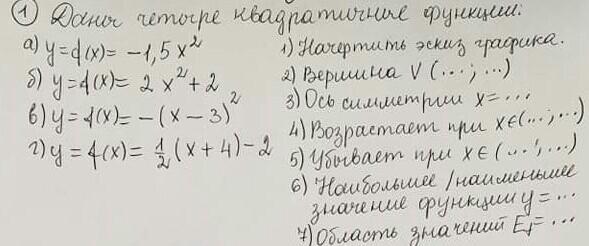 ① Даны четыре квадратичные функции:
а) y=f(x)= -1,5x²
б) y=f(x)= 2x²+2
в) y=f(x)= -(x-3)²
г) y=f(x)= ½(x+4)-2
1) Начертить эскиз графика.
2) Вершина V (...;...)
3) Ось симметрии x=...
4) Возрастает при x∈(...;...)
5) Убывает при x∈(...;...)
6) Наибольшее/наименьшее
значение функции y=...
7) Область значений E_f=...